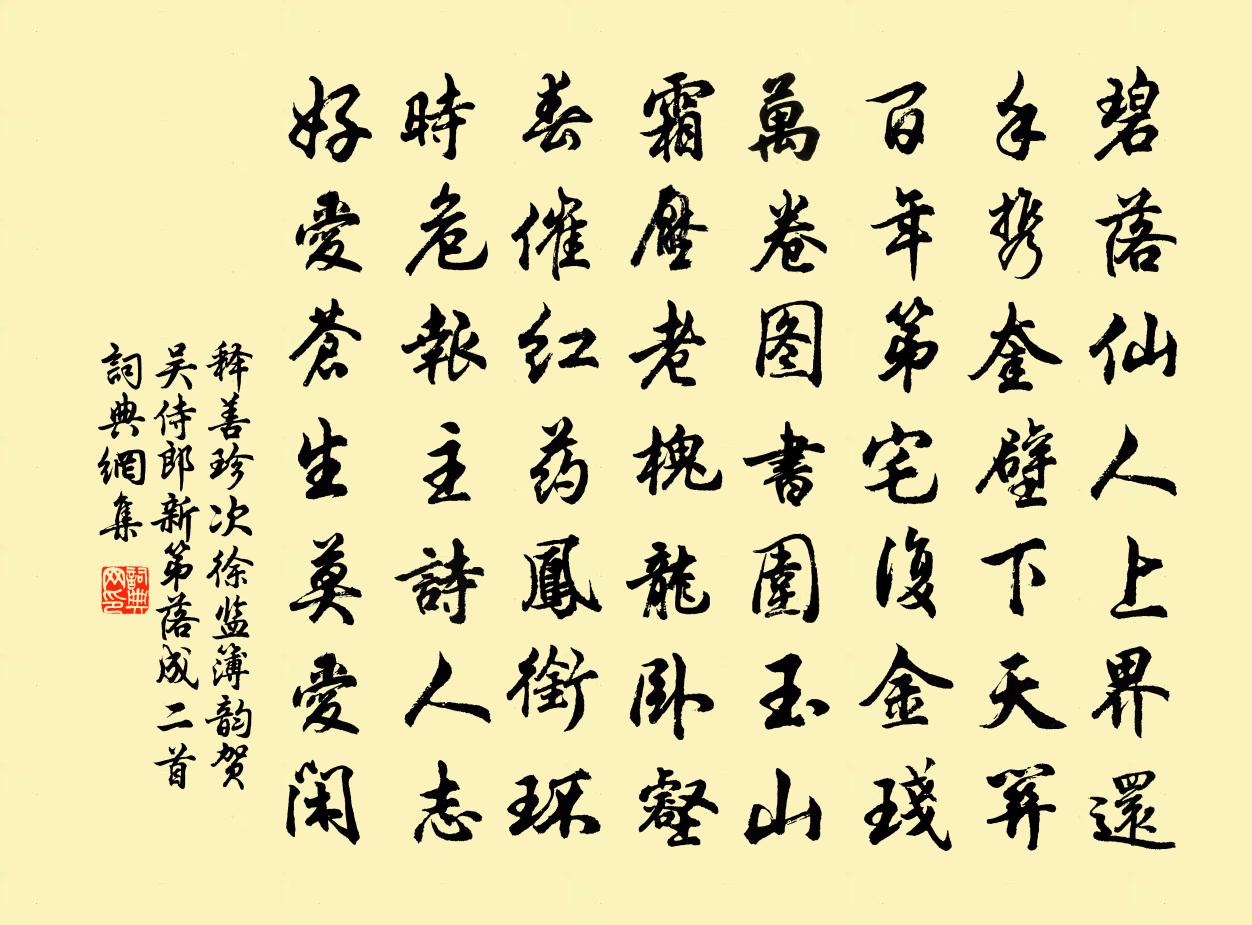 碧落仙人上界還
手携奎壁下天關
百年第宅復金琖
萬卷图書圍玉山
霜壓老槐龍卧壑
春催红药鳳銜环
時危報主詩人志
好愛蒼生莫愛閑
释善珍次徐监簿韵贺
吴侍郎新第落成二首
詞典網集
詞典网印